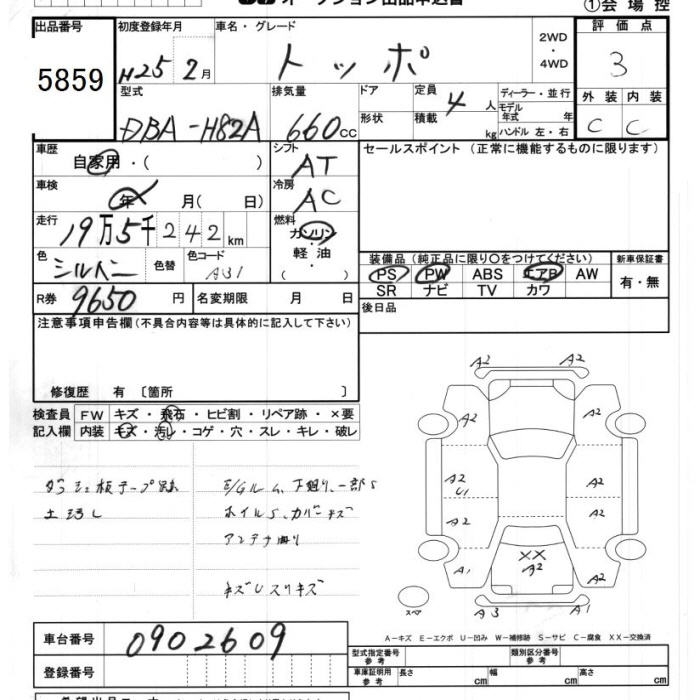 オークション出品申込書
①会場控
出品番号
5859
初度登録年月
H25 2月
車名・グレード
トッポ
2WD
・
4WD
評価点
3
外装 内装
C C
型式
DBA-H82A
排気量
660cc
ドア
形状
定員
4人
積載
kg
ディーラー・並行
モデル
年式 年
ハンドル 左・右
車歴
自家用・( )
シフト
AT
セールスポイント (正常に機能するものに限ります)
車検
年 月( 日)
冷房
AC
走行
19万5千242km
燃料
ガソリン
・
軽油
・
( )
色
シルバー
色替
色コード
A31
装備品 (純正品に限り〇をつけてください)
PS PW ABS エアB AW
SR ナビ TV カワ
新車保証書
有・無
R券 9650 円
名変期限 月 日
後日品
注意事項申告欄(不具合内容等は具体的に記入して下さい)
修復歴 有〔箇所 〕
検査員
記入欄
FW キズ・飛石・ヒビ割・リペア跡・×要
内装 キズ・汚レ・コゲ・穴・スレ・キレ・破レ
ダッシュ板テープ跡
E/Gルーム、下廻り、一部S
ホイルS、カバーキズ
アンテナ曲り
キズUスリキズ
A2 A2
A2 A2
A2 U1
A2
A2
A2
A1
XX
A2
A2
スペア
A3 A1
A-キズ E-エクボ U-凹み W-補修跡 S-サビ C-腐食 XX-交換済
車台番号
0902609
登録番号
型式指定番号
参考
類別区分番号
参考
車庫証明用
参考
長さ cm 幅 cm 高さ cm